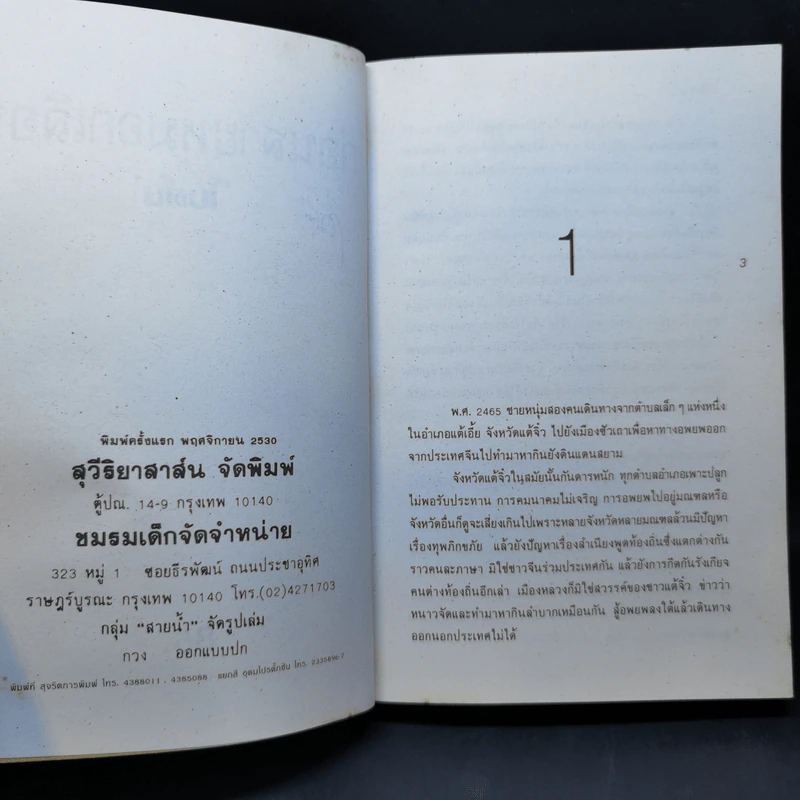 พิมพ์ครั้งแรก พฤศจิกายน 2530
สุวีริยาสาส์น จัดพิมพ์
ตู้ปณ. 14-9 กรุงเทพ 10140
ชมรมเด็กจัดจำหน่าย
323 หมู่ 1 ซอยธีรพัฒน์ ถนนประชาอุทิศ
ราษฎร์บูรณะ กรุงเทพ 10140 โทร.(02)4271703
กลุ่ม "สายน้ำ" จัดรูปเล่ม
กวง ออกแบบปก
พิมพ์ที่ สุจริตการพิมพ์ โทร. 4388011, 4385088 แยกสี อุดมโปรดั๊กชั่น โทร.
1
3
พ.ศ. 2465 ชายหนุ่มสองคนเดินทางจากตำบลเล็ก ๆ แห่งหนึ่ง
ในอำเภอแต้เอี้ย จังหวัดแต้จิ๋ว ไปยังเมืองซัวเถาเพื่อหาทางอพยพออก
จากประเทศจีนไปทำมาหากินยังดินแดนสยาม
จังหวัดแต้จิ๋วในสมัยนั้นกันดารหนัก ทุกตำบลอำเภอเพาะปลูก
ไม่พอรับประทาน การคมนาคมไม่เจริญ การอพยพไปอยู่มณฑลหรือ
จังหวัดอื่นก็ดูจะเสี่ยงเกินไปเพราะหลายจังหวัดหลายมณฑลล้วนมีปัญหา
เรื่องทุพภิกขภัย แล้วยังปัญหาเรื่องสำเนียงพูดท้องถิ่นซึ่งแตกต่างกัน
ราวคนละภาษา มิใช่ชาวจีนร่วมประเทศกัน แล้วยังการกีดกันรังเกียจ
คนต่างท้องถิ่นอีกเล่า เมืองหลวงก็มิใช่สวรรค์ของชาวแต้จิ๋ว ข่าวว่า
หนาวจัดและทำมาหากินลำบากเหมือนกัน สู้อพยพลงใต้แล้วเดินทาง
ออกนอกประเทศไม่ได้